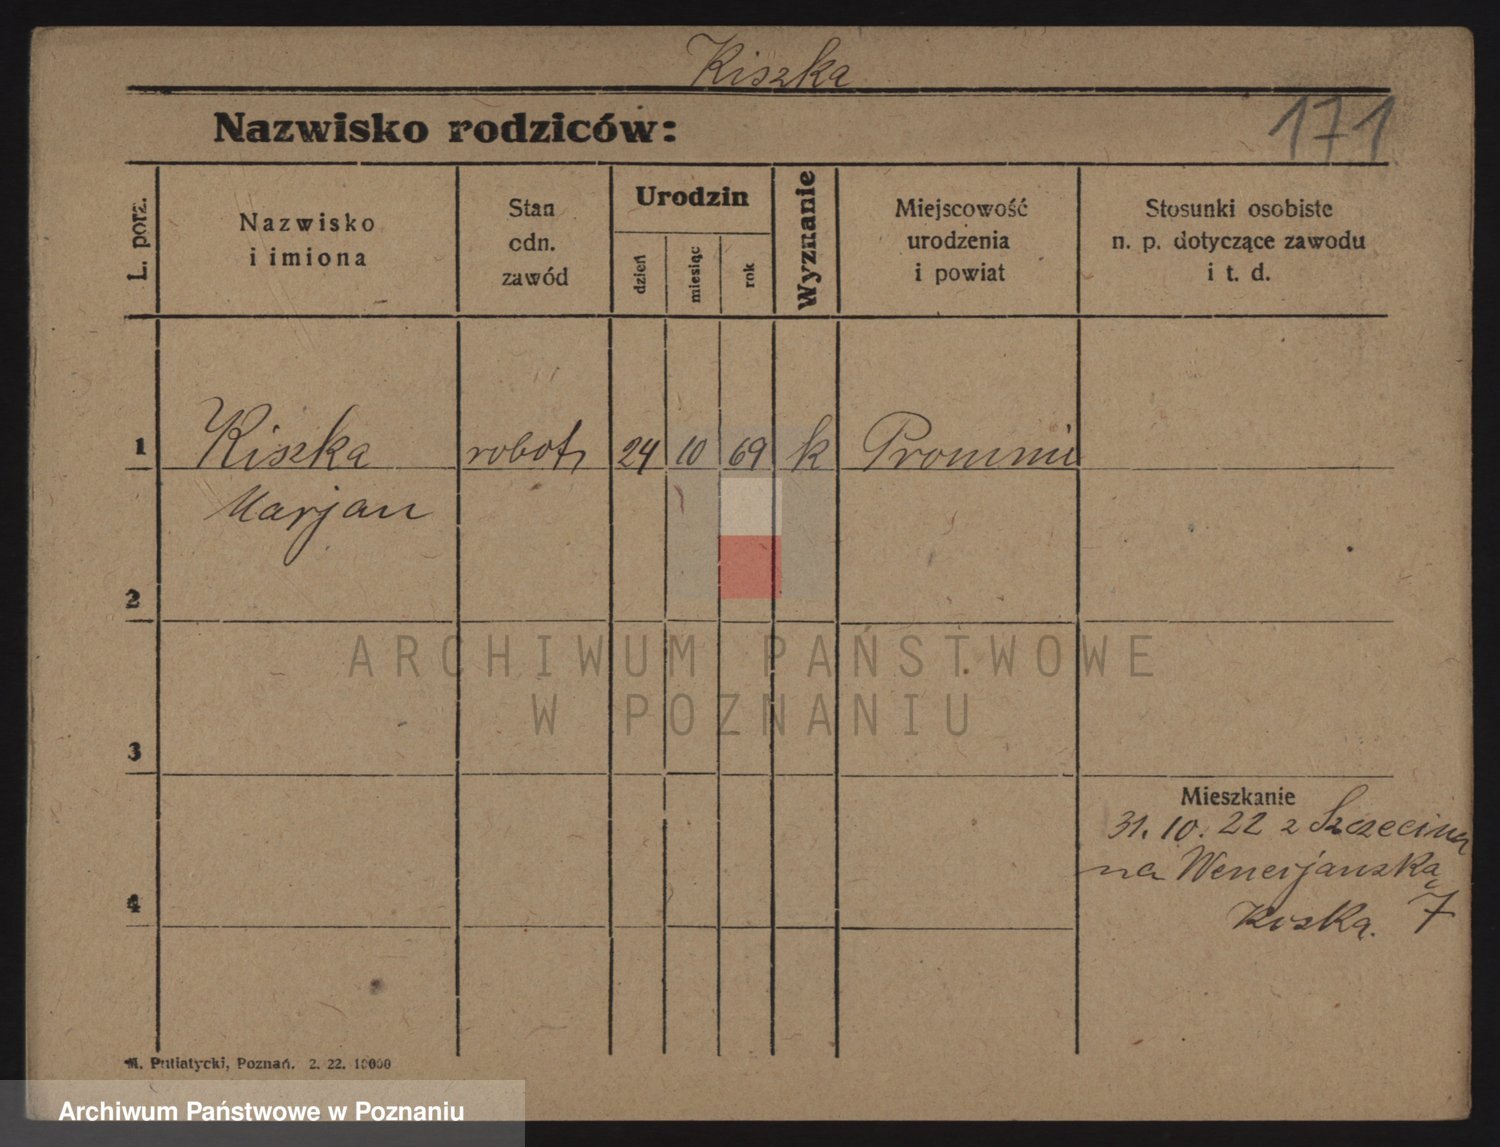 Kiszka
Nazwisko rodziców:
171
L. porz.
Nazwisko
i imiona
Stan
odn.
zawód
Urodzin
dzień
miesiąc
rok
Wyznanie
Miejscowość
urodzenia
i powiat
Stosunki osobiste
n. p. dotyczące zawodu
i t. d.
1 Kiszka robotn 24 10 69 k
Marjan
2
ARCHIWUM PAŃSTWOWE
W POZNANIU
3
Mieszkanie
31. 10. 22 z Szczecina
na Wenecjańską
7
4
M. Putiatycki, Poznań. 2. 22. 10000
Archiwum Państwowe w Poznaniu